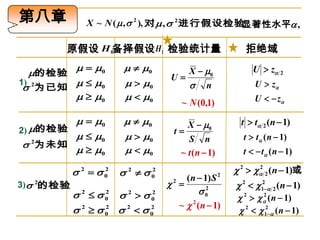 第八章
X ~ N(μ,σ²), 对 μ,σ² 进行假设检验 显著性水平α,
原假设 H₀ 备择假设 H₁ 检验统计量 拒绝域
1) μ的检验 σ²为已知
μ = μ₀ μ ≠ μ₀ |U| > z_{α/2}
μ ≤ μ₀ μ > μ₀ U = (X̄ − μ₀)/(σ/√n) U > z_α
μ ≥ μ₀ μ < μ₀ ~ N(0,1) U < −z_α
2) μ的检验 σ²为未知
μ = μ₀ μ ≠ μ₀ |t| > t_{α/2}(n−1)
μ ≤ μ₀ μ > μ₀ t = (X̄ − μ₀)/(S/√n) t > t_α(n−1)
μ ≥ μ₀ μ < μ₀ ~ t(n−1) t < −t_α(n−1)
3) σ²的检验
σ² = σ₀² σ² ≠ σ₀² χ² > χ²_{α/2}(n−1)或
χ² = (n−1)S²/σ₀² χ² < χ²_{1−α/2}(n−1)
σ² ≤ σ₀² σ² > σ₀² χ² > χ²_α(n−1)
σ² ≥ σ₀² σ² < σ₀² ~ χ²(n−1) χ² < χ²_{1−α}(n−1)